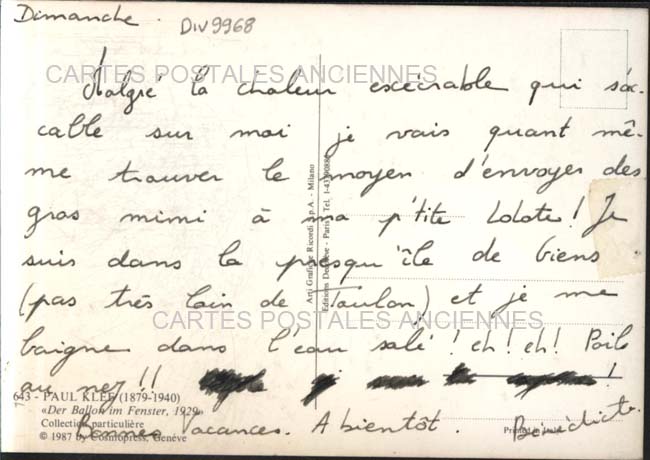 Dimanche.
Div9968
CARTES POSTALES ANCIENNES
Malgré la chaleur exécrable qui s'ac-
cable sur moi je vais quant mê-
me trouver le moyen d'envoyer des
gros mimi à ma p'tite Lolote! Je
suis dans la presqu'île de Giens
(pas très loin de Toulon) et je me
CARTES POSTALES ANCIENNES
baigne dans l'eau salé! eh! eh! Poile
au nez!! !
Bonnes Vacances. A bientôt. Bénédicte.
643 - PAUL KLEE (1879-1940)
«Der Ballon im Fenster, 1929»
Collection particulière
© 1987 by Cosmopress, Genève
Arti Grafiche Ricordi S.p.A. - Milano
Printed in Italy